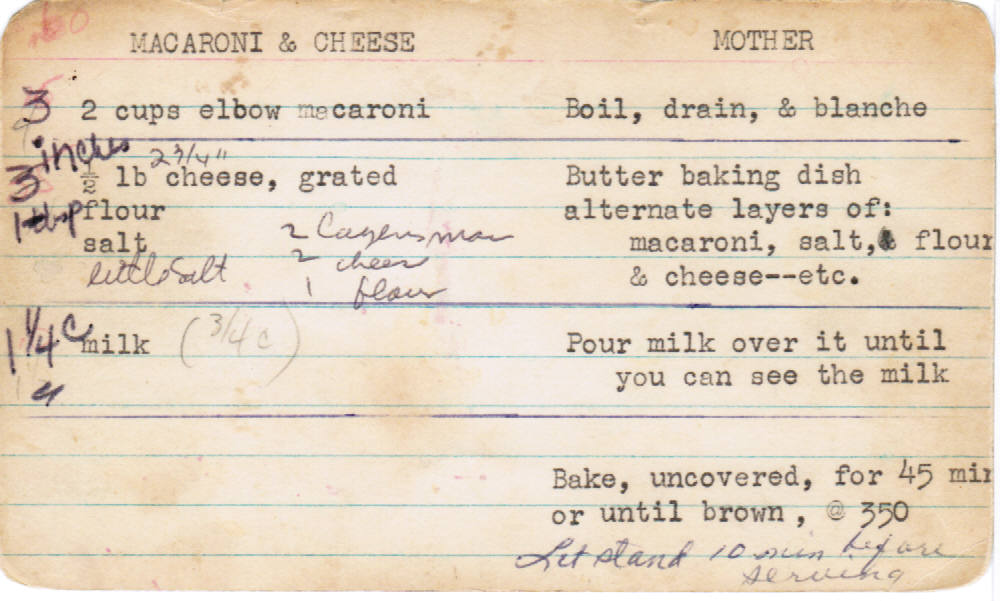 MACARONI & CHEESE MOTHER
3 2 cups elbow macaroni Boil, drain, & blanche
inches 2 3/4"
3 ½ lb cheese, grated Butter baking dish
1 tbsp flour alternate layers of:
salt 2 Layers mac macaroni, salt, & flour
little salt 2 cheese & cheese--etc.
1 flour
1 1/4 c milk (3/4 c) Pour milk over it until
you can see the milk
Bake, uncovered, for 45 min
or until brown, @ 350
Let stand 10 min before
serving